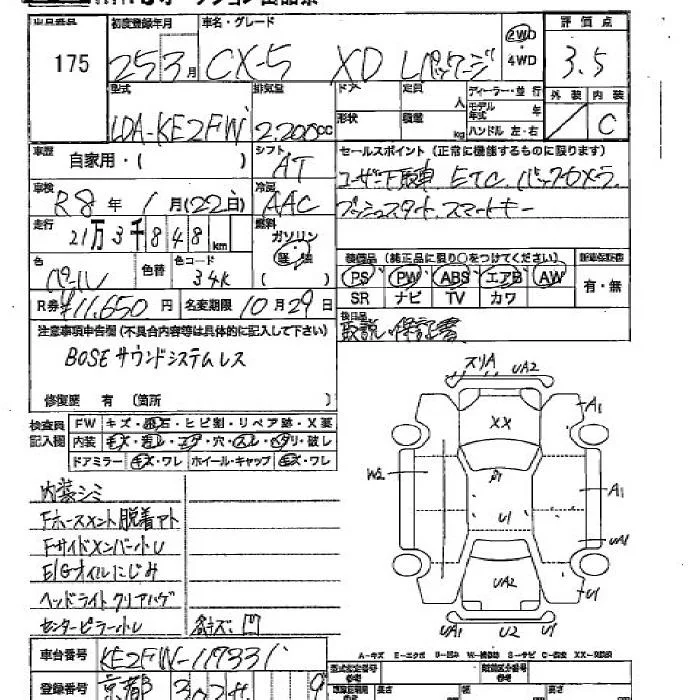 出品番号 初度登録年月 車名・グレード 評価点
175 25 3月 CX-5 XD Lパッケージ 2WD ・ 4WD 3.5
型式 排気量 ドア 定員 人 ディーラー・並行 外装 内装
LDA-KE2FW 2.200cc 形状 積量 kg モデル年式 年 ハンドル 左・右 C
車歴 自家用・( ) シフト AT セールスポイント (正常に機能するものに限ります)
車検 R8年 1月(22日) 冷房 AAC ユーザー下取車 ETC バックカメラ
プッシュスタート スマートキー
走行 21万3千848km 燃料 ガソリン 軽油 ( )
色 パール 色替 色コード 34K
装備品 (純正品に限り○をつけてください)
PS PW ABS エアB AW 有・無
SR ナビ TV カワ
R券 ¥11,650円 名変期限 10月29日
後日品
取説・保証書
注意事項申告欄 (不具合内容等は具体的に記入して下さい)
BOSEサウンドシステムレス
修復歴 有 (箇所 )
検査員記入欄 FW キズ・飛石・ヒビ割・リペア跡・X要
内装 ・穴・スレ・ ・破レ
ドアミラー キズ・ワレ ホイール・キャップ キズ・ワレ
スリA UA2
XX A1
W2 A1
U1 UA1
UA2 U1
UA1 U2 U1
内装シミ
Fホースメント脱着アト
Fサイドメンバー小U
E/Gオイルにじみ
ヘッドライトクリアハゲ
センターピラー小U 各キズ、凹
A-キズ E-エクボ U-凹み
車台番号 KE2FW-119331
登録番号 京都 302
型式指定番号 参考 類別区分番号 参考
長さ 幅 高さ